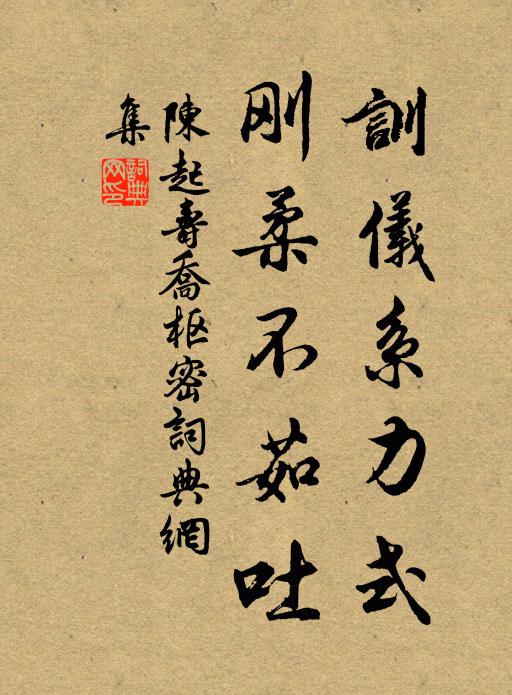 訓儀系力式
刚柔不茹吐
陳起壽喬枢密詞典網
集
詞典
网印